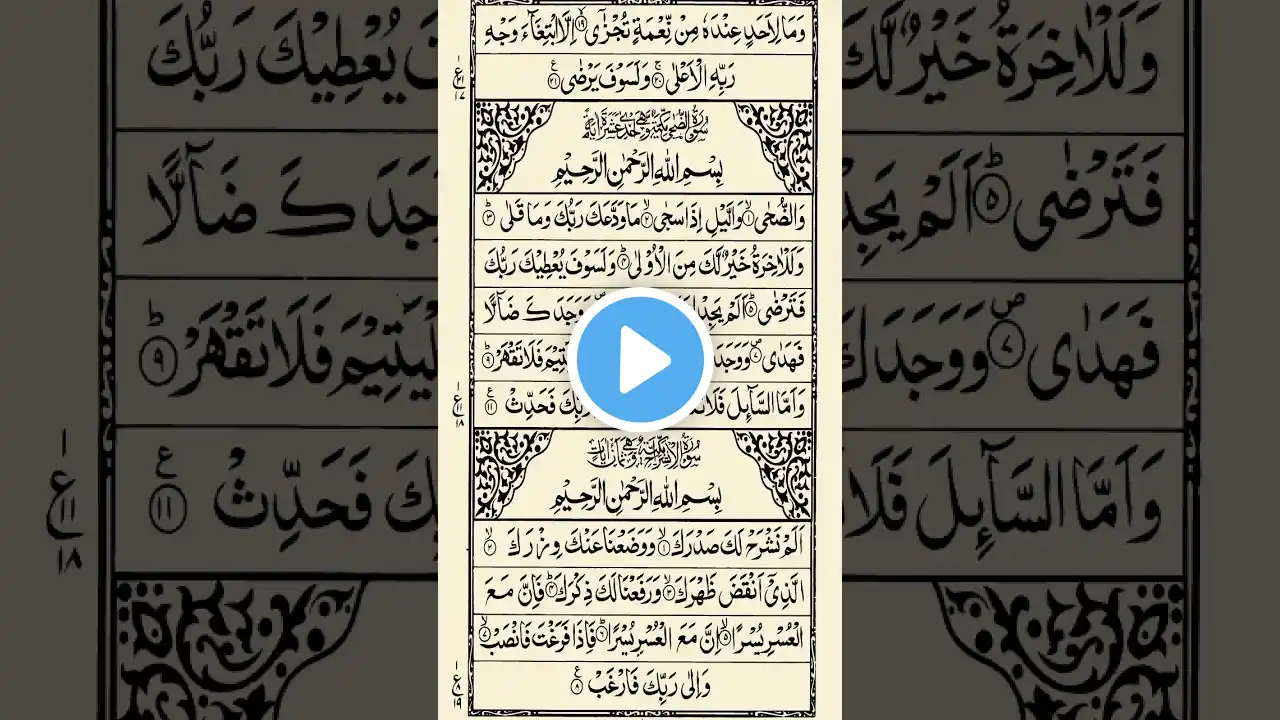 وَمَا لِاَحَدٍ عِنْدَهٗ مِنْ نِّعْمَةٍ تُجْزٰٓى ۙ۝۱۹ اِلَّا ابْتِغَآءَ وَجْهِ
رَبِّهِ الْاَعْلٰى ۚ۝۲۰ وَلَسَوْفَ يَرْضٰى ۝۲۱
سُوْرَةُ الضُّحٰى مَكِّيَّةٌ وَّهِيَ اِحْدٰى عَشَرَةَ اٰيَةً
بِسْمِ اللّٰهِ الرَّحْمٰنِ الرَّحِيْمِ
وَالضُّحٰى ۙ۝۱ وَالَّيْلِ اِذَا سَجٰى ۙ۝۲ مَا وَدَّعَكَ رَبُّكَ وَمَا قَلٰى ؕ۝۳
وَلَلْاٰخِرَةُ خَيْرٌ لَّكَ مِنَ الْاُوْلٰى ؕ۝۴ وَلَسَوْفَ يُعْطِيْكَ رَبُّكَ
فَتَرْضٰى ؕ۝۵ اَلَمْ يَجِدْ وَوَجَدَكَ ضَآلًّا
فَهَدٰى ۪۝۷ وَوَجَدَ الْيَتِيْمَ فَلَا تَقْهَرْ ؕ۝۹
وَاَمَّا السَّآئِلَ فَلَا رَبِّكَ فَحَدِّثْ ۝۱۱
سُوْرَةُ الْاِنْشِرَاحِ مَكِّيَّةٌ وَّهِيَ ثَمَانُ اٰيَاتٍ
بِسْمِ اللّٰهِ الرَّحْمٰنِ الرَّحِيْمِ
اَلَمْ نَشْرَحْ لَكَ صَدْرَكَ ۙ۝۱ وَوَضَعْنَا عَنْكَ وِزْرَكَ ۙ۝۲
الَّذِيْٓ اَنْقَضَ ظَهْرَكَ ۙ۝۳ وَرَفَعْنَا لَكَ ذِكْرَكَ ؕ۝۴ فَاِنَّ مَعَ
الْعُسْرِ يُسْرًا ۙ۝۵ اِنَّ مَعَ الْعُسْرِ يُسْرًا ؕ۝۶ فَاِذَا فَرَغْتَ فَانْصَبْ ۙ۝۷
وَاِلٰى رَبِّكَ فَارْغَبْ ۝۸